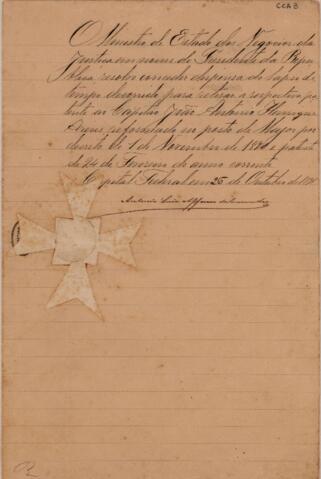 CCA 3
O Ministro de Estado dos Negocios da
Justiça em nome do Presidente da Repu-
blica, resolve conceder dispensa do lapso de
tempo decorrido para retirar a respectiva pa-
tente ao Capitão João Antonio Henrique
reformado no posto de Major por
decreto de 1 de Novembro de 1890 e patente
de 24 de Fevereiro do anno corrente.
Capital Federal em 26 de Outubro de 189
Antonio Luiz Affonso de